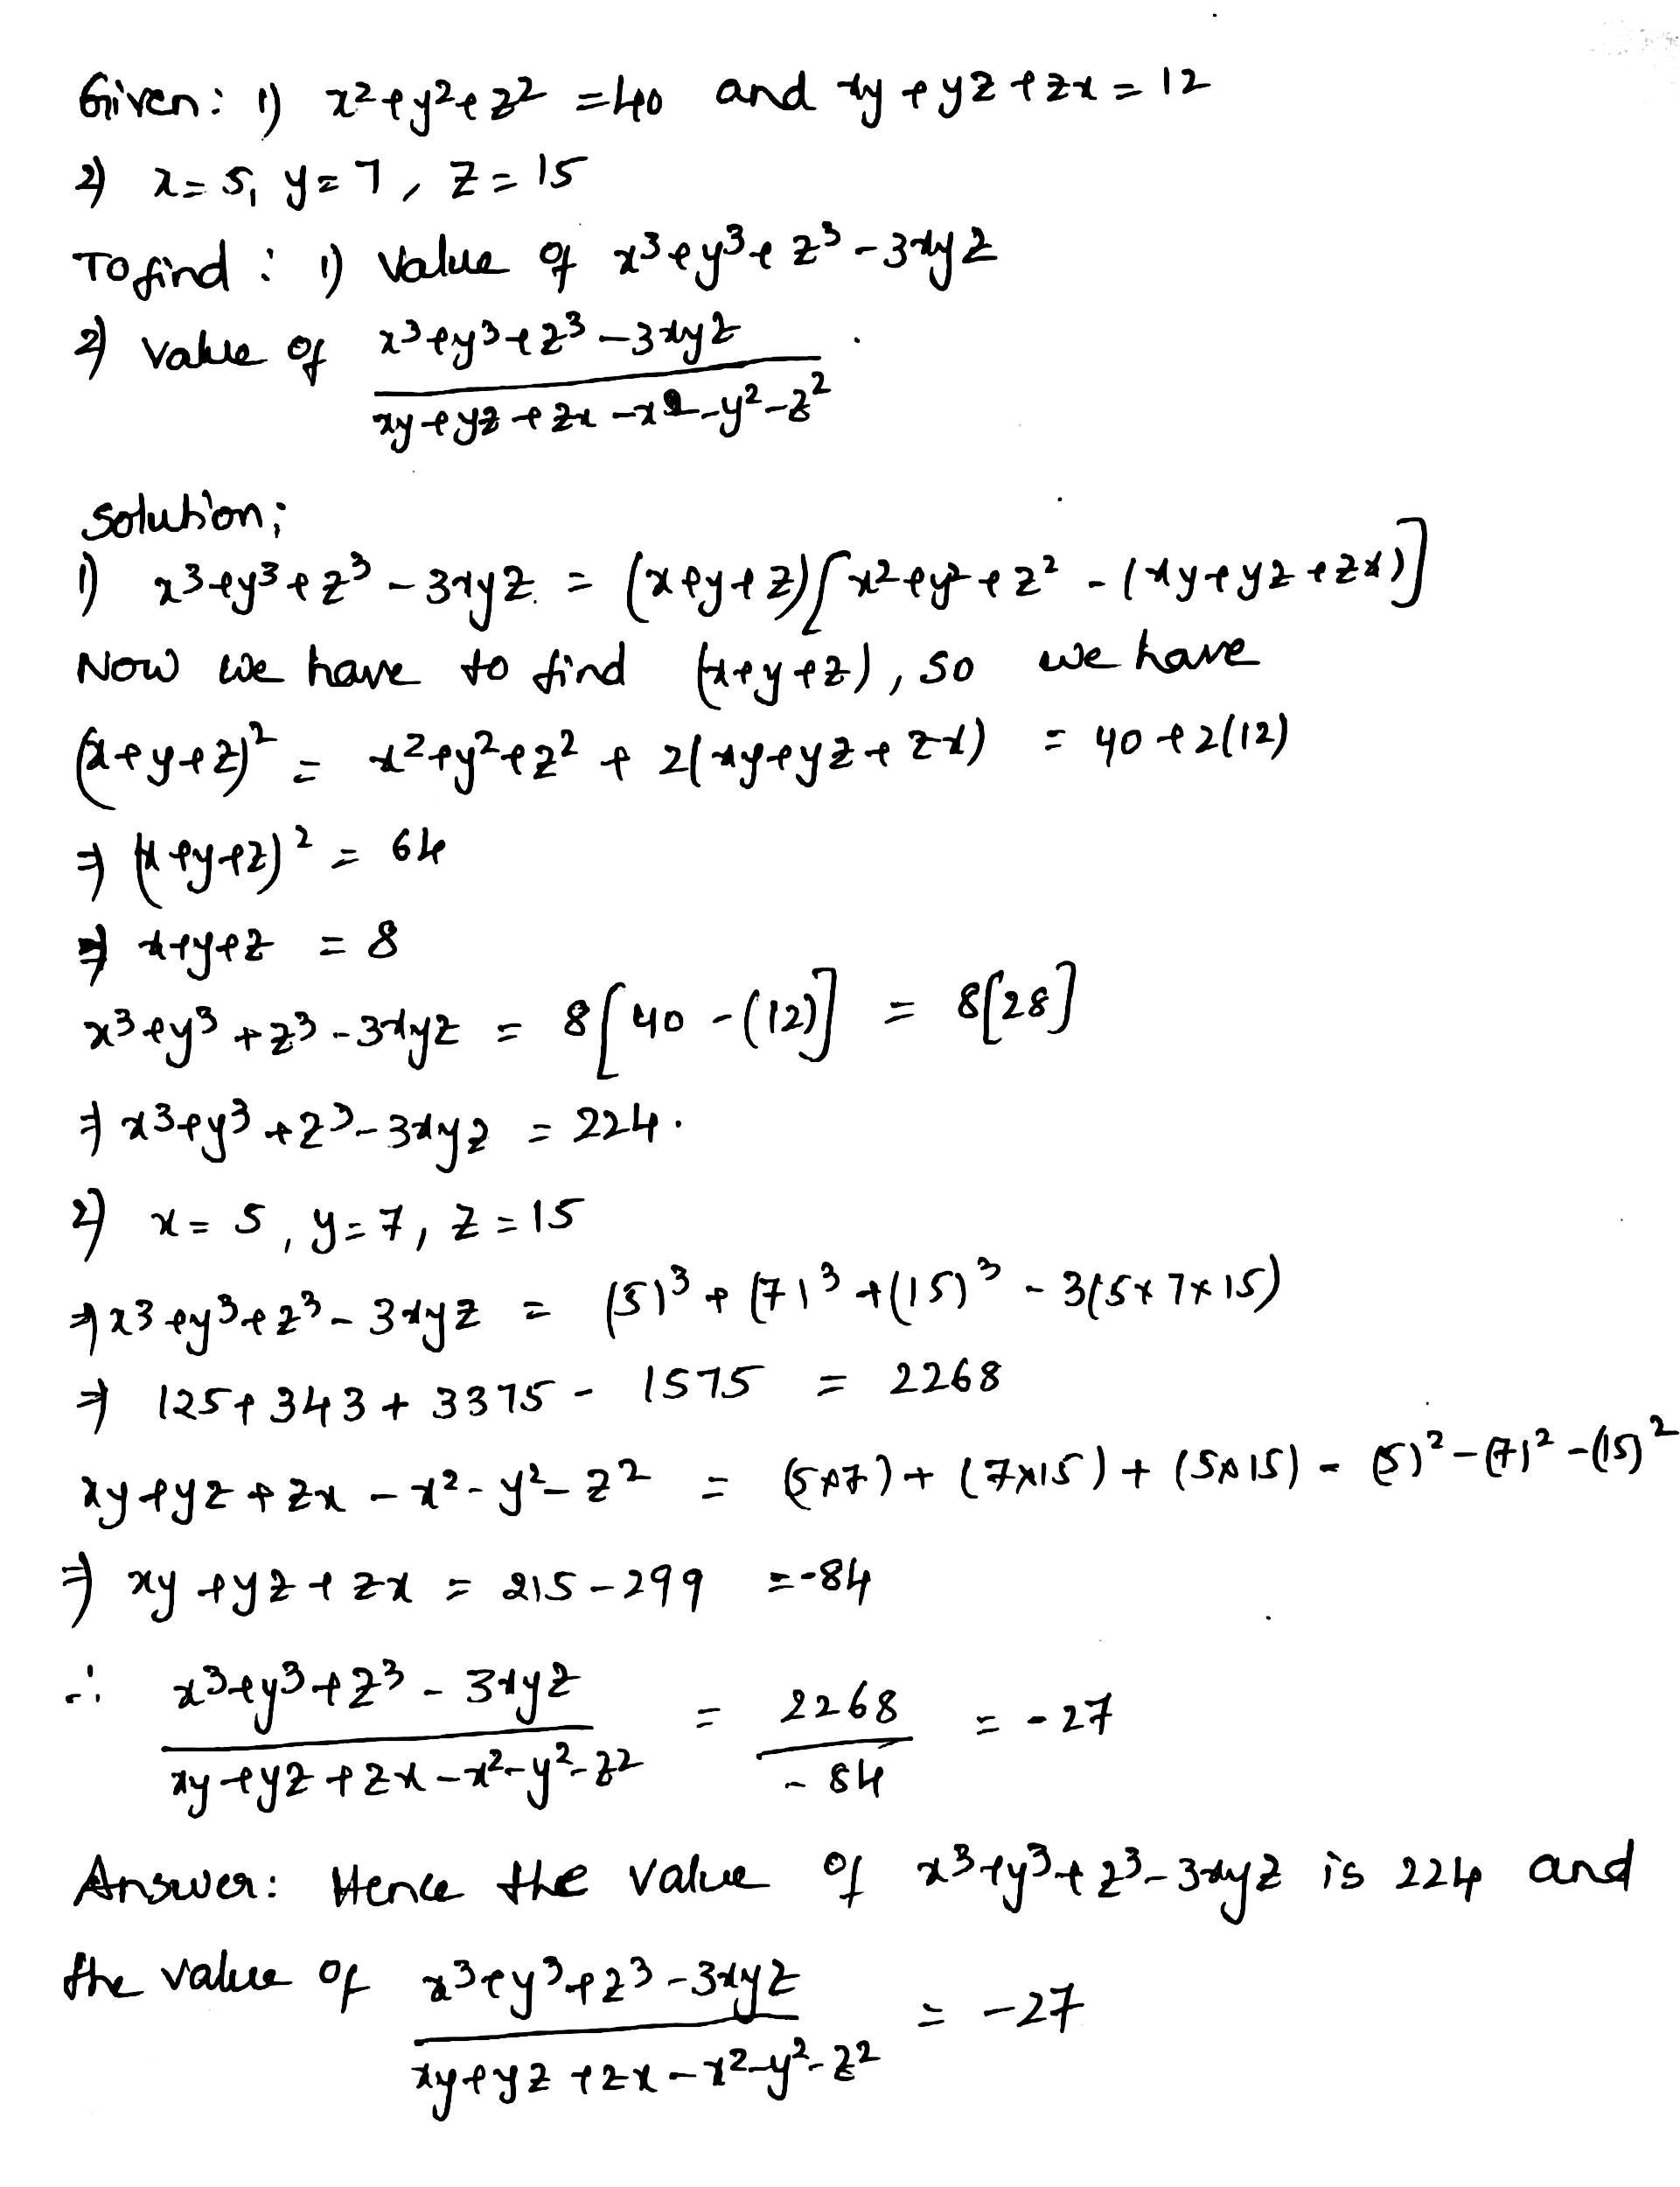 Given: 1) x²+y²+z² = 40 and xy+yz+zx = 12
2) x=5, y=7, z=15
To find : 1) Value of x³+y³+z³-3xyz
2) value of x³+y³+z³-3xyz
xy+yz+zx-x²-y²-z²
Solution;
1) x³+y³+z³-3xyz. = (x+y+z)[x²+y²+z²-(xy+yz+zx)]
Now we have to find (x+y+z), so we have
(x+y+z)² = x²+y²+z²+2(xy+yz+zx) = 40+2(12)
⇒ (x+y+z)² = 64
⇒ x+y+z = 8
x³+y³+z³-3xyz = 8[40-(12)] = 8[28]
⇒ x³+y³+z³-3xyz = 224.
2) x=5, y=7, z=15
⇒ x³+y³+z³-3xyz = (5)³+(7)³+(15)³-3(5×7×15)
⇒ 125+343+3375-1575 = 2268
xy+yz+zx-x²-y²-z² = (5×7)+(7×15)+(5×15)-(5)²-(7)²-(15)²
⇒ xy+yz+zx = 215-299 = -84
∴ x³+y³+z³-3xyz = 2268 = -27
xy+yz+zx-x²-y²-z² -84
Answer: Hence the value of x³+y³+z³-3xyz is 224 and
the value of x³+y³+z³-3xyz = -27
xy+yz+zx-x²-y²-z²